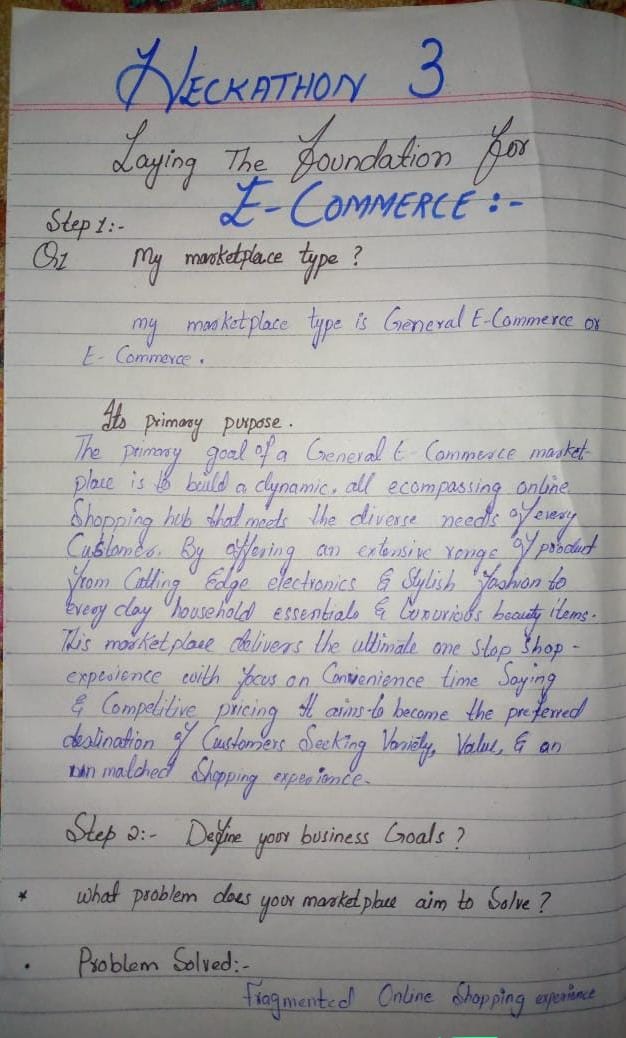 HECKATHON 3
Laying The Foundation For
E-COMMERCE :-
Step 1:-
Q1 My marketplace type ?
my marketplace type is General E-Commerce or
E- Commerce .
Its primary purpose .
The primary goal of a General E-Commerce market-
place is to build a dynamic, all ecompassing online
Shopping hub that meets the diverse needs of every
Customer. By offering an extensive range of product
from Cutting Edge electronics & Stylish fashion to
every day household essentials & Luxurious beauty items.
This marketplace delivers the ultimate one stop shop-
experience with focus on Convenience time Saying
& Competitive pricing It aims to become the preferred
destination of Customers Seeking Variety, Value, & an
unmatched Shopping experience.
Step 2:- Define your business Goals ?
* what problem does your marketplace aim to Solve ?
• Problem Solved:-
Fragmented Online Shopping experience